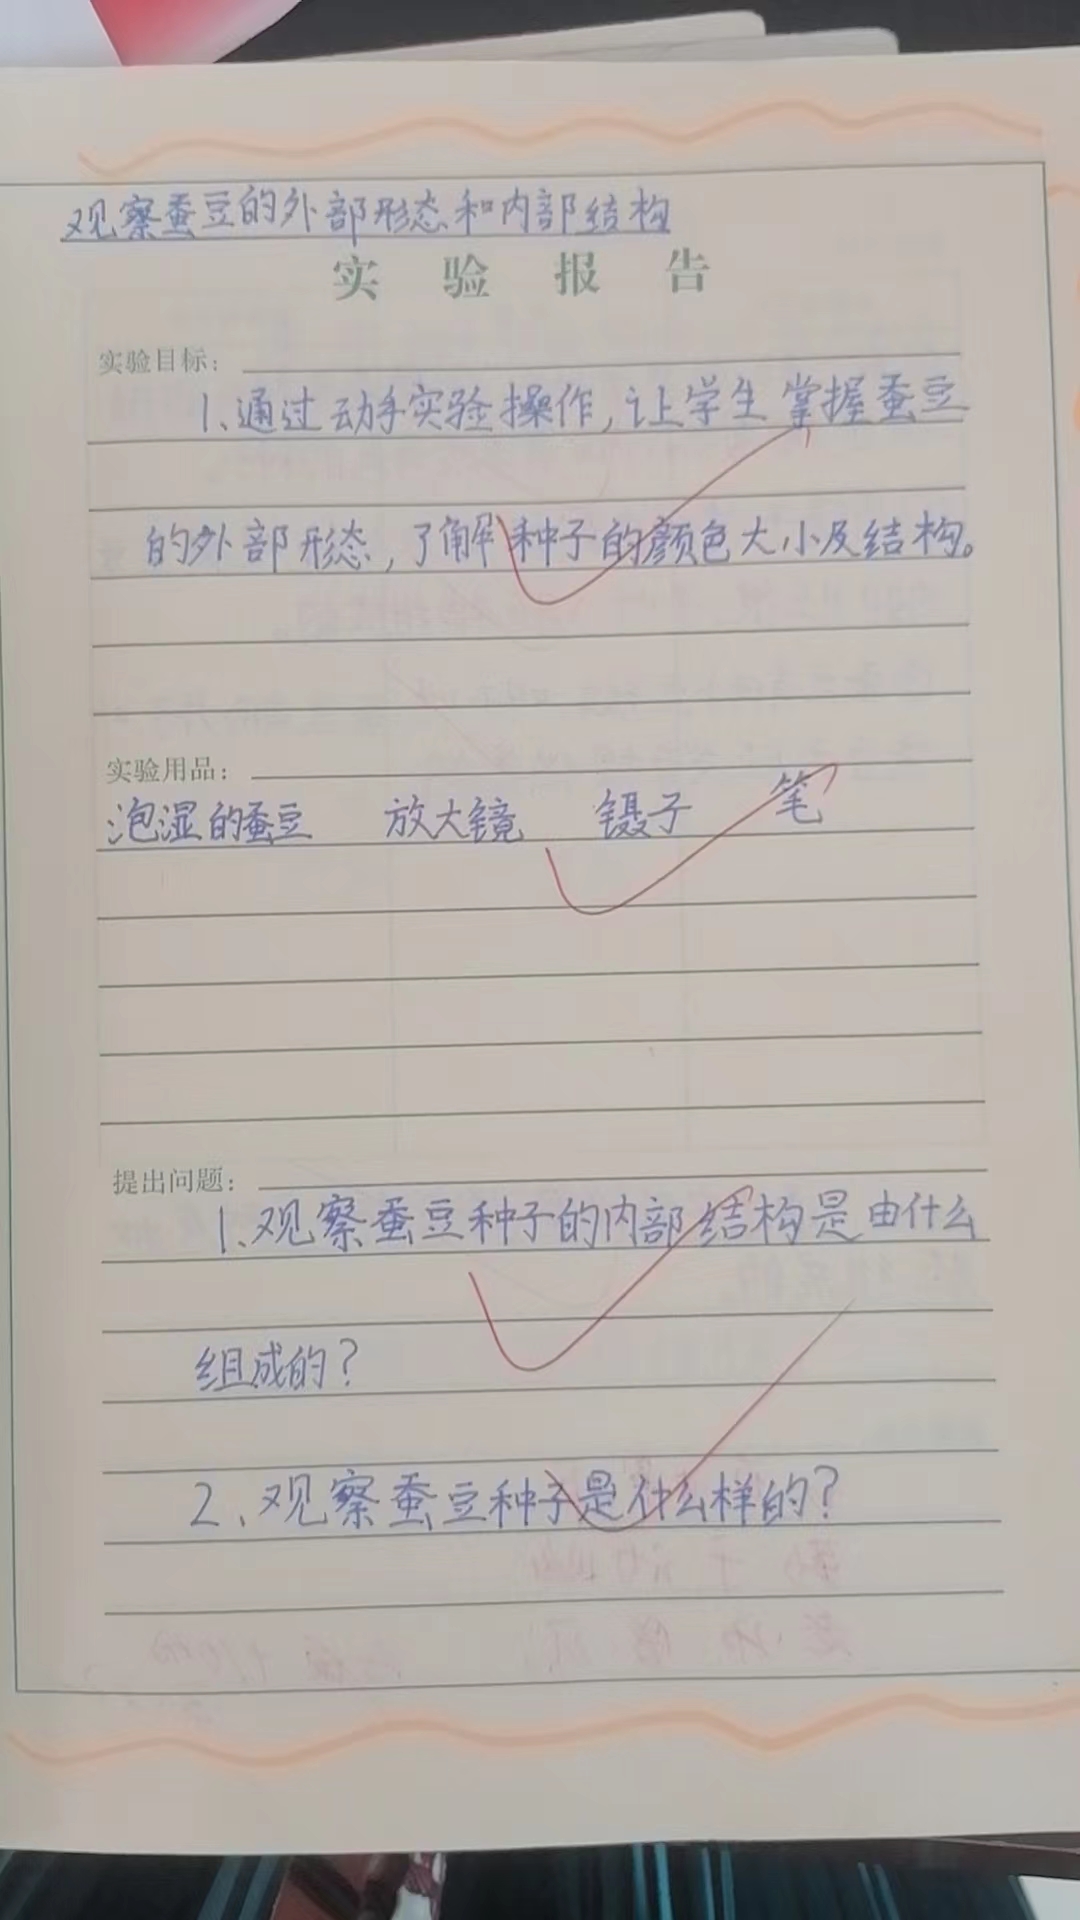 观察蚕豆的外部形态和内部结构
实验报告
实验目标：
1、通过动手实验操作,让学生掌握蚕豆
的外部形态,了解种子的颜色大小及结构。
实验用品：
泡湿的蚕豆 放大镜 镊子 笔
提出问题：
1、观察蚕豆种子的内部结构是由什么
组成的?
2、观察蚕豆种子是什么样的?